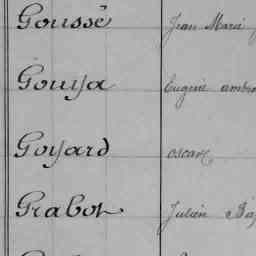 Goussé Jean Marie
Gouya Eugène ambro
Goyard oscar
Grabot Julien